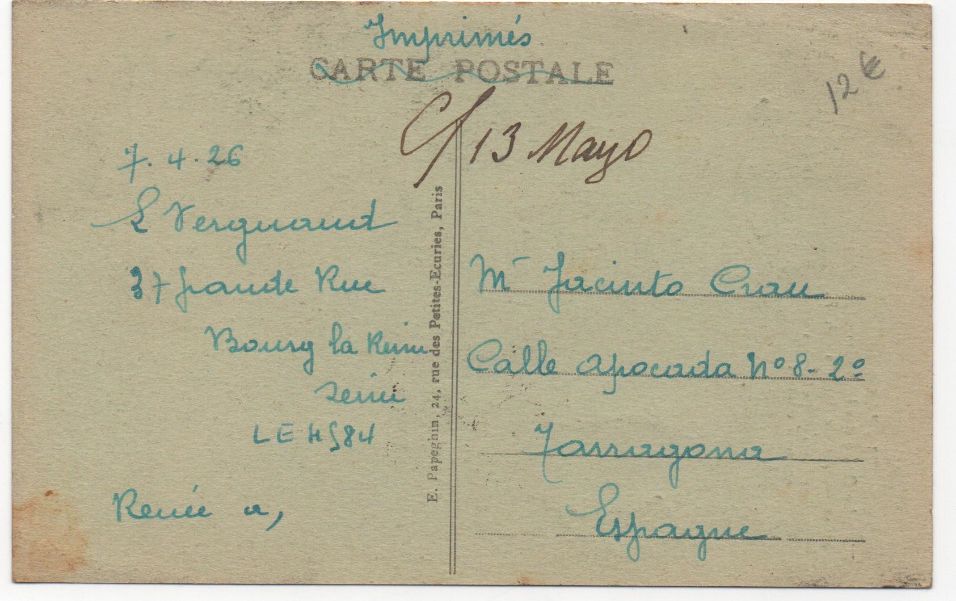 Imprimés
CARTE POSTALE
12 €
C/ 13 Mayo
7. 4. 26
L Vergnaud
37 Grande Rue
Bourg la Reine
Seine
LE H
Renée a,
E. Papeghin, 24, rue des Petites-Ecuries, Paris
Mr Jacinto Crau
Calle Apocada Nº 8- 2º
Tarragona
Espagne